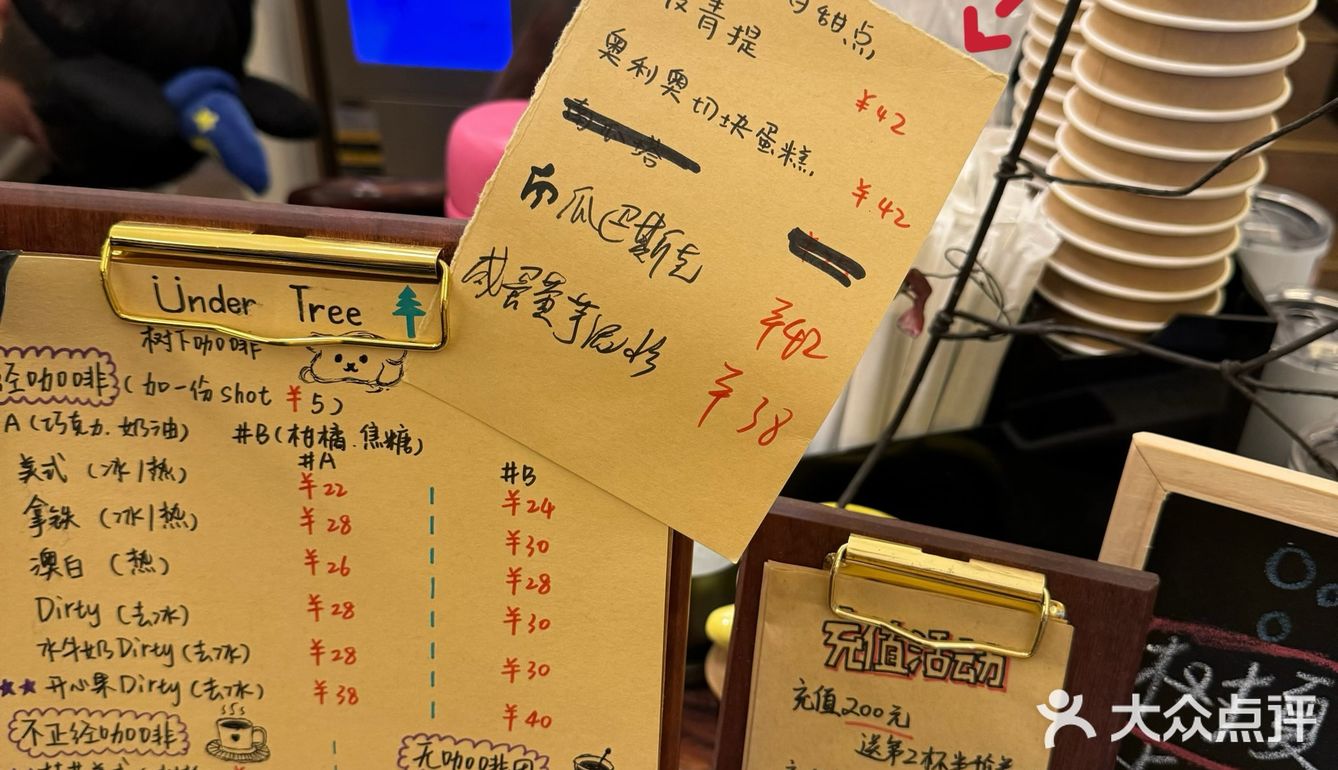 甜点
青提
¥42
奥利奥切块蛋糕
¥42
南瓜巴斯克
¥42
咸蛋黄芋泥
¥38
Under Tree
树下咖啡
经咖啡(加一份shot ¥5)
A(巧克力.奶油) #B(柑橘.焦糖)
#A #B
美式(冰|热) ¥22 ¥24
拿铁(冰|热) ¥28 ¥30
澳白(热) ¥26 ¥28
Dirty(去冰) ¥28 ¥30
水牛奶Dirty(去冰) ¥28 ¥30
开心果Dirty(去冰) ¥38 ¥40
不正经咖啡
无咖啡因
充值活动
充值200元
送第2杯半价
大众点评